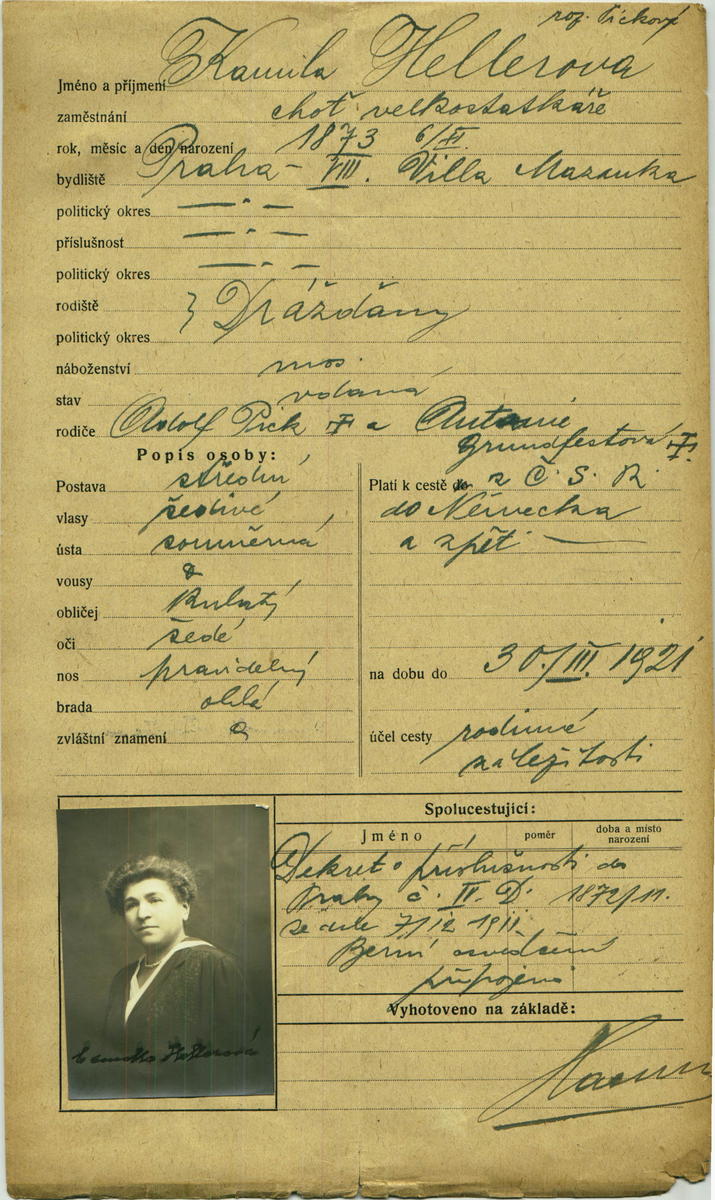 roz. Picková
Jméno a příjmení Kamila Hellerova
zaměstnání choť velkostatkáře
rok, měsíc a den narození 1873 6/XI.
bydliště Praha - VIII. Villa Mazanka
politický okres — " —
příslušnost — " —
politický okres — " —
rodiště } Drážďany
politický okres
náboženství mos.
stav vdaná
rodiče Adolf Pick † a Antonie
Grundfestová †
Popis osoby:
Postava střední
vlasy šedivé
ústa souměrná
vousy
obličej kulatý
oči šedé
nos pravidelný
brada oblá
zvláštní znamení
Platí k cestě do z Č. S. R.
do Německa
a zpět —
na dobu do 30./III. 1921
účel cesty rodinné
záležitosti
Spolucestující:
Jméno poměr doba a místo narození
Dekret o příslušnosti do
Prahy č. II. D. 1872/11.
ze dne 7/12 1911
Berní osvědčení
připojeno
Vyhotoveno na základě:
Hellerová